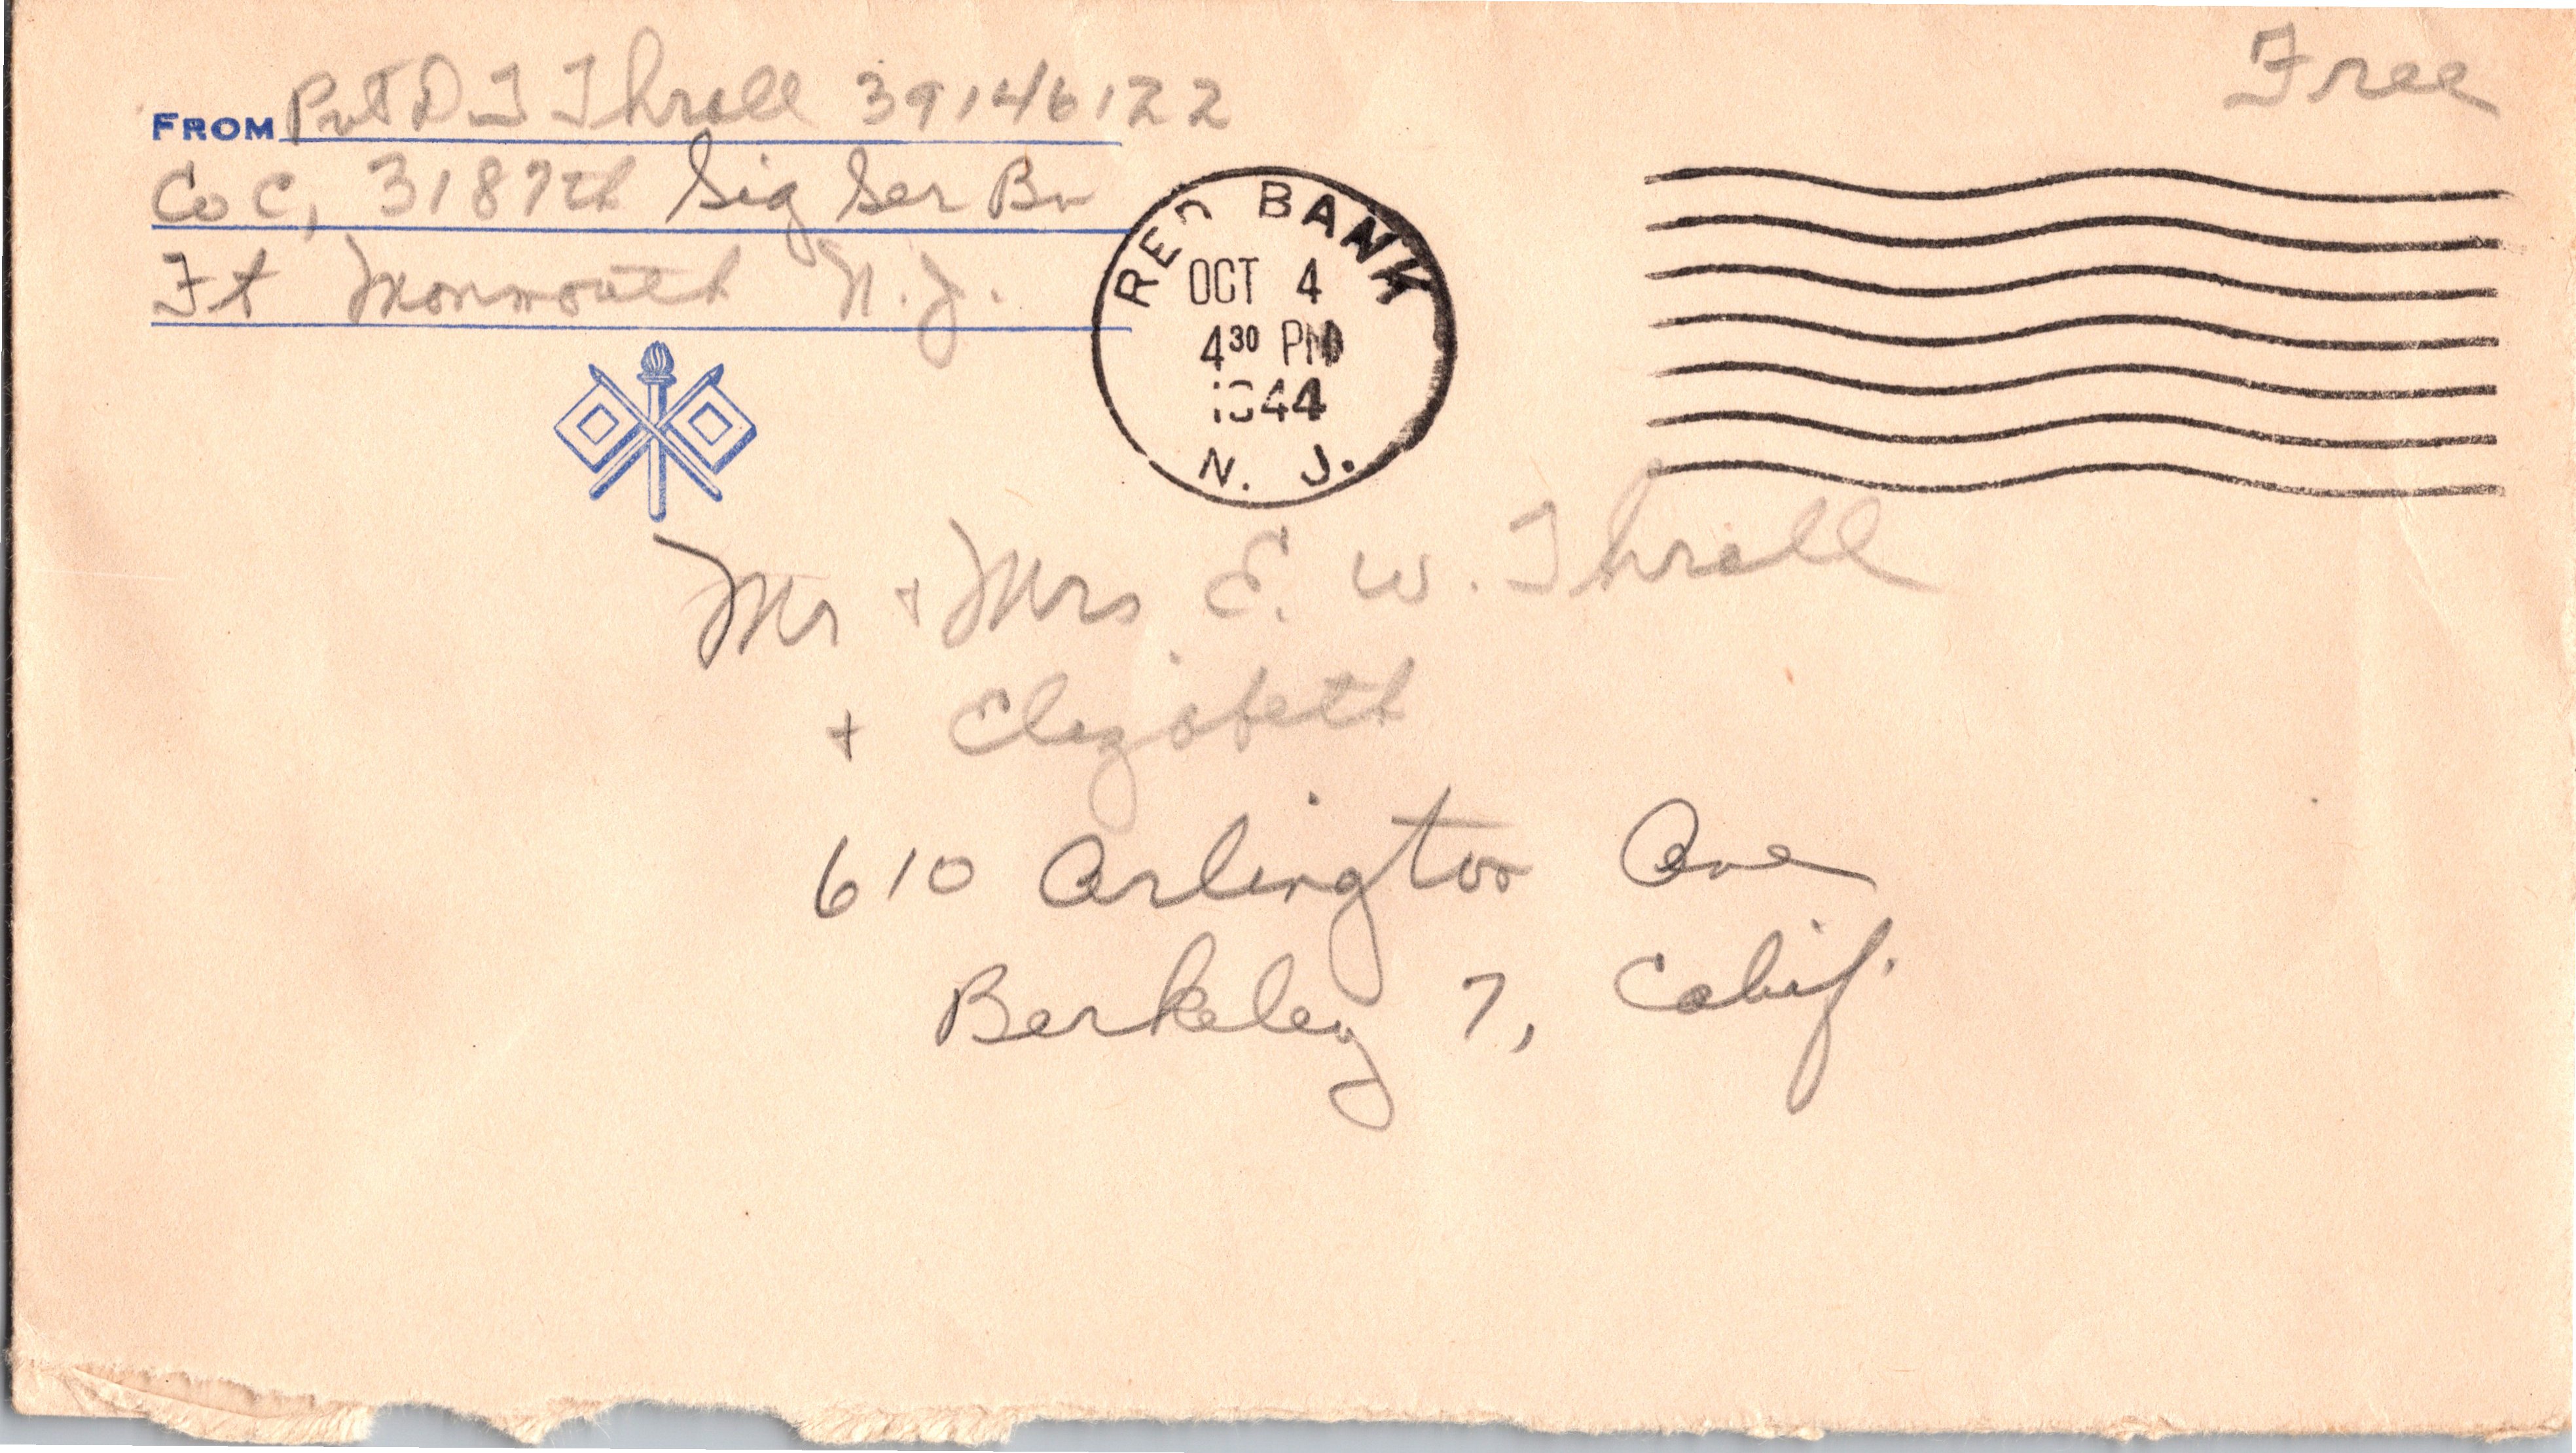 Free
FROM Pvt D T Thrall 39146122
Co C, 3187th Sig Ser Bn
Ft Monmouth N.J.
RED BANK
OCT 4
4 30 PM
1944
N. J.
Mr + Mrs E. W. Thrall
+ Elizabeth
610 Arlington Ave
Berkeley 7, Calif.